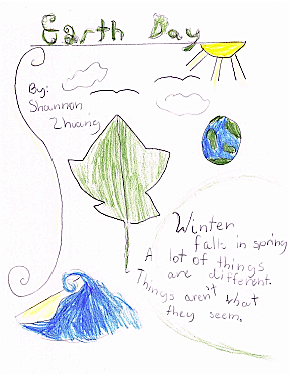 Earth Day
By:
Shannon
Zhuang
Winter
falls in spring
A lot of things
are different.
Things aren't what
they seem.